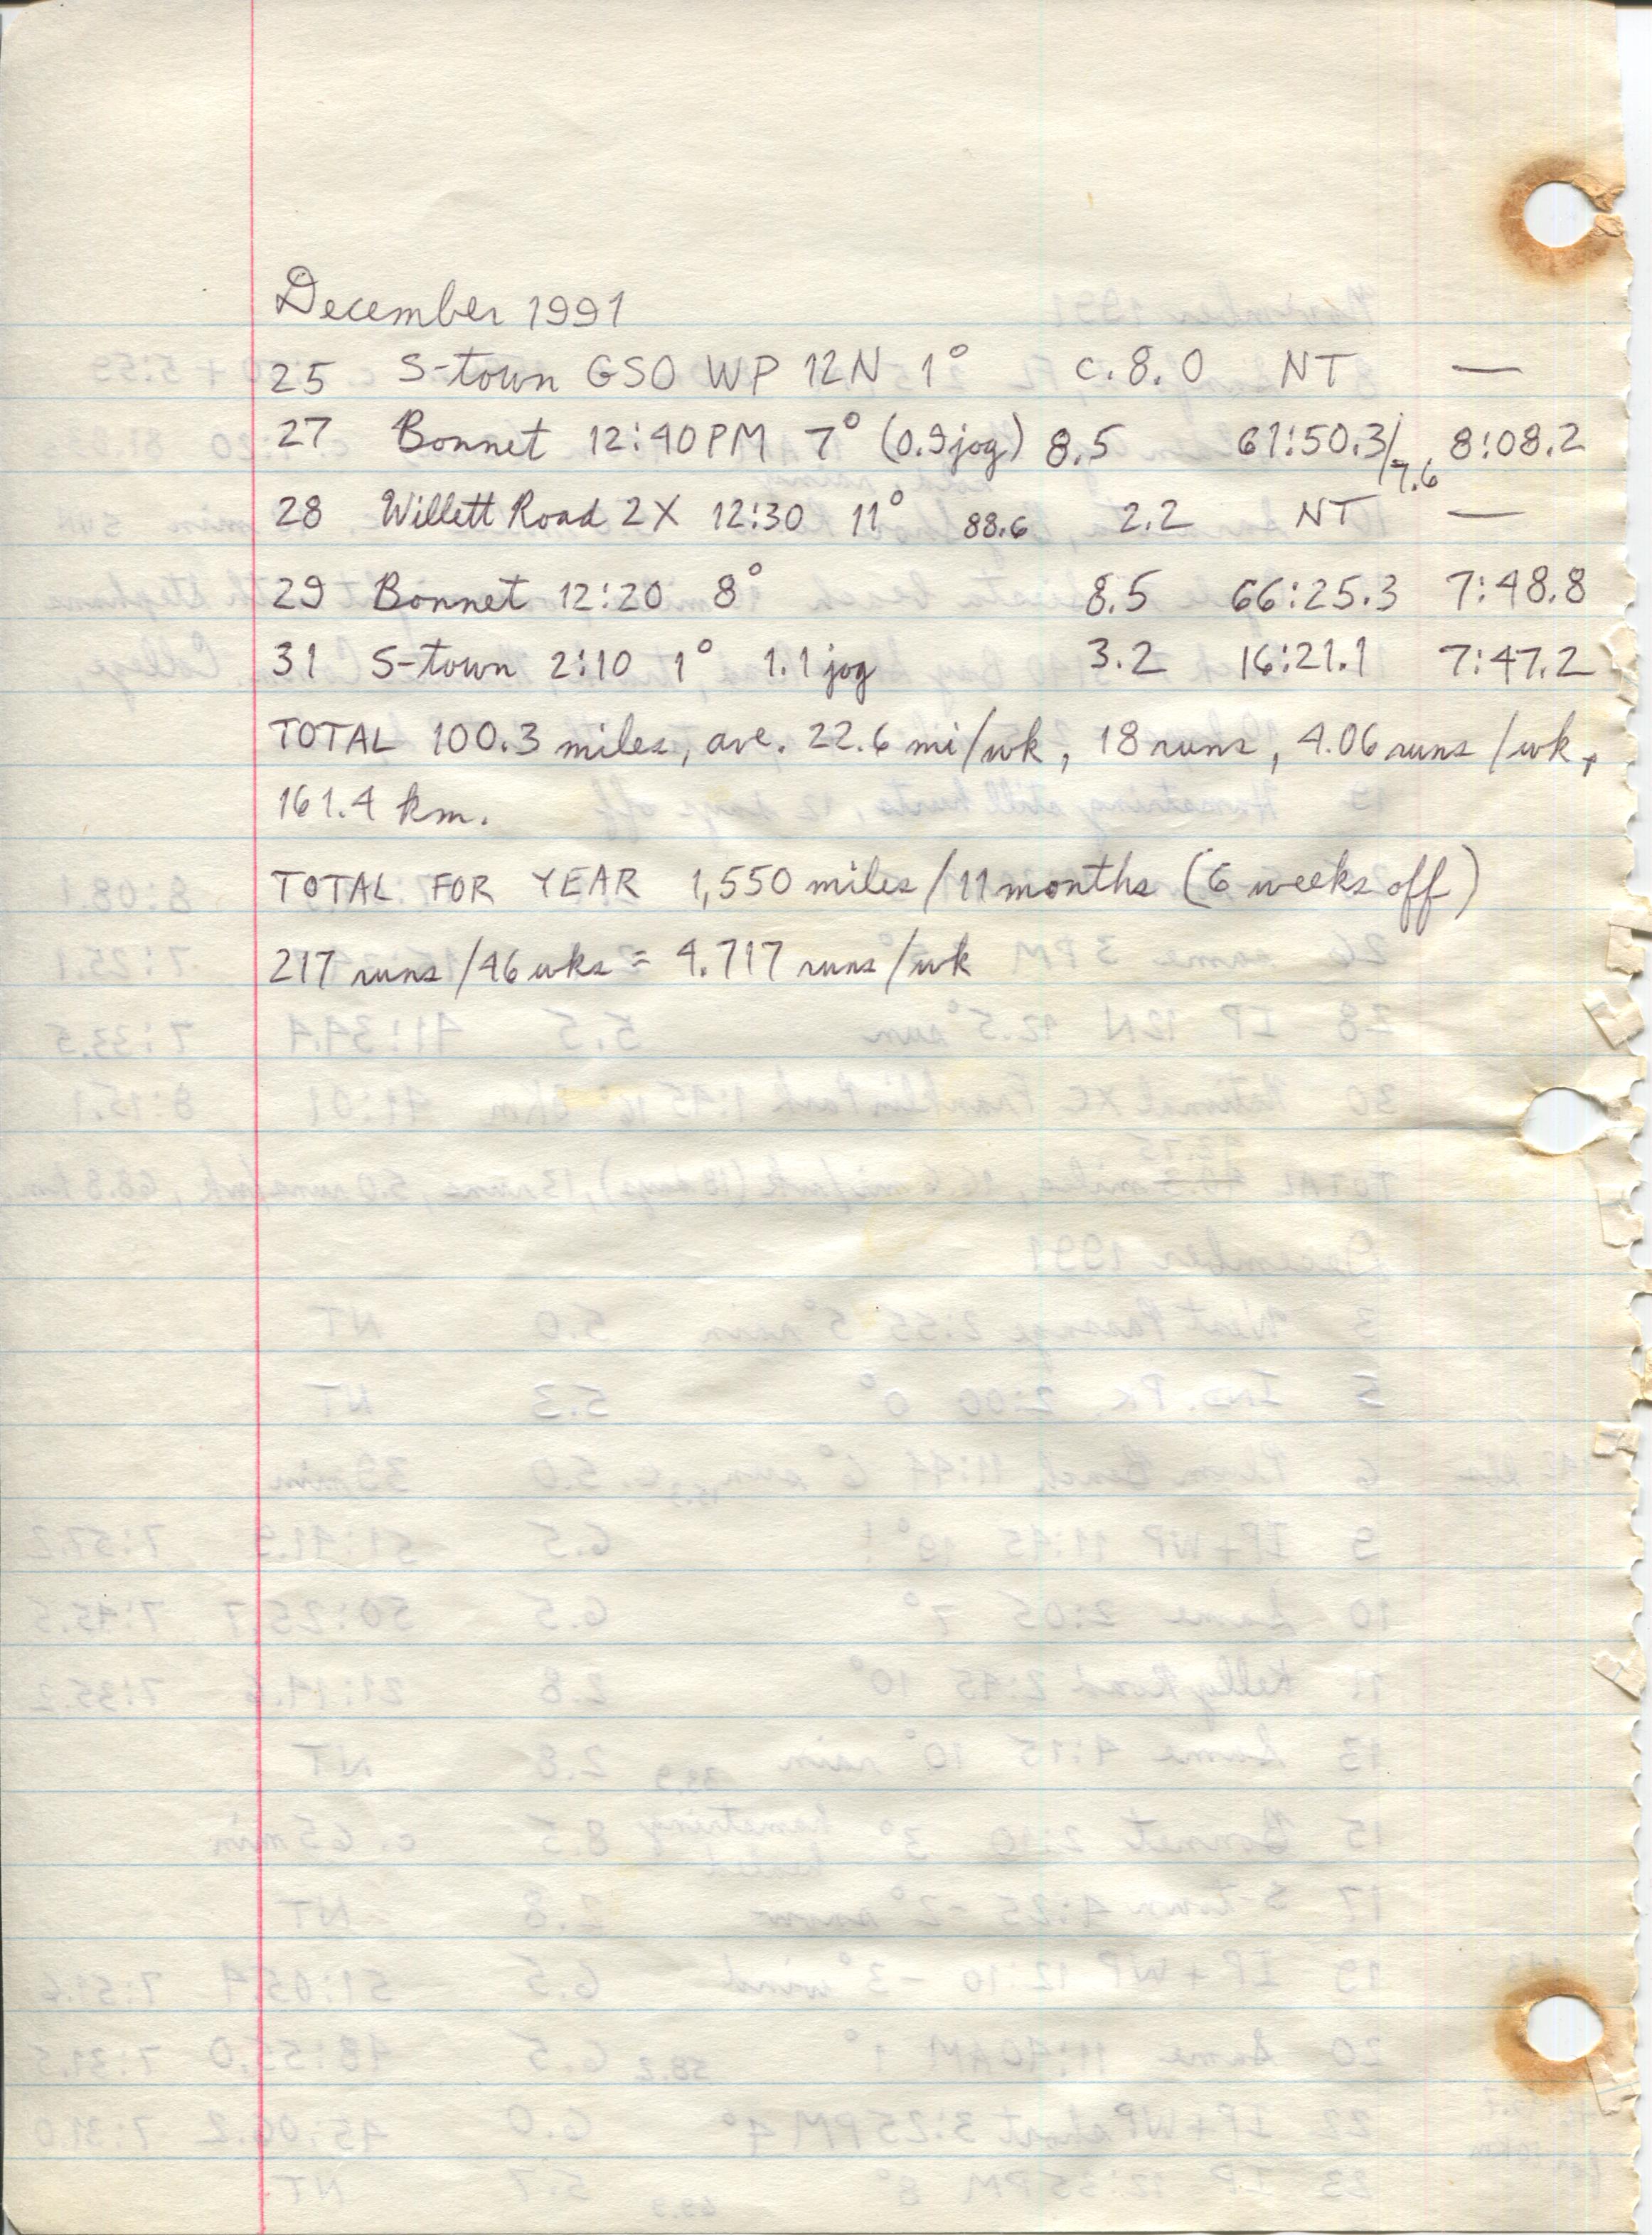 December 1991
25 S-town GSO WP 12N 1° c.8.0 NT —
27 Bonnet 12:40PM 7° (0.9 jog) 8.5 61:50.3/7.6 8:08.2
28 Willett Road 2X 12:30 11° 88.6 2.2 NT —
29 Bonnet 12:20 8° 8.5 66:25.3 7:48.8
31 S-town 2:10 1° 1.1 jog 3.2 16:21.1 7:47.2
TOTAL 100.3 miles, ave. 22.6 mi/wk, 18 runs, 4.06 runs/wk,
161.4 km.
TOTAL FOR YEAR 1,550 miles/11 months (6 weeks off)
217 runs/46 wks = 4.717 runs/wk